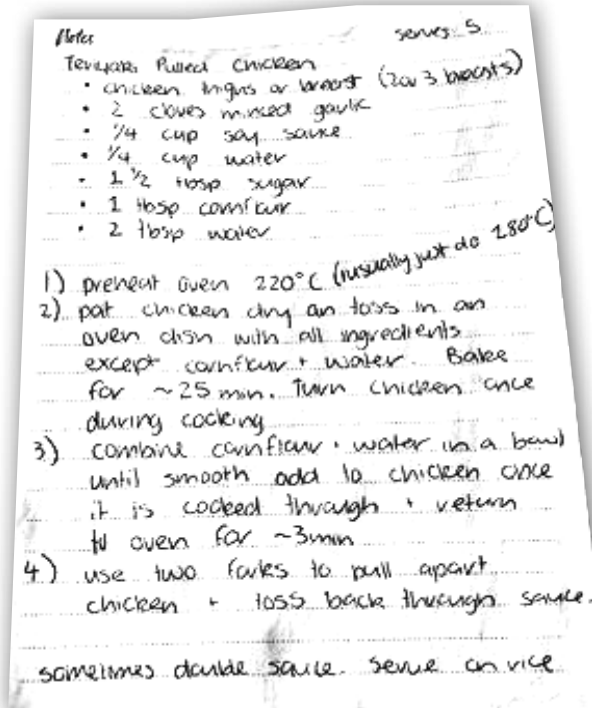 Notes serves 5
Teriyaki Pulled Chicken
• chicken thighs or breast (2 or 3 breasts)
• 2 cloves minced garlic
• 1/4 cup soy sauce
• 1/4 cup water
• 1 1/2 tbsp sugar
• 1 tbsp cornflour
• 2 tbsp water
1) preheat oven 220°C (i usually just do 180°C)
2) pat chicken dry an toss in an
oven dish with all ingredients
except cornflour + water. Bake
for ~25 min. Turn chicken once
during cooking
3) combine cornflour + water in a bowl
until smooth add to chicken once
it is cooked through + return
to oven for ~3min
4) use two forks to pull apart
chicken + toss back through sauce.
sometimes double sauce. serve on rice